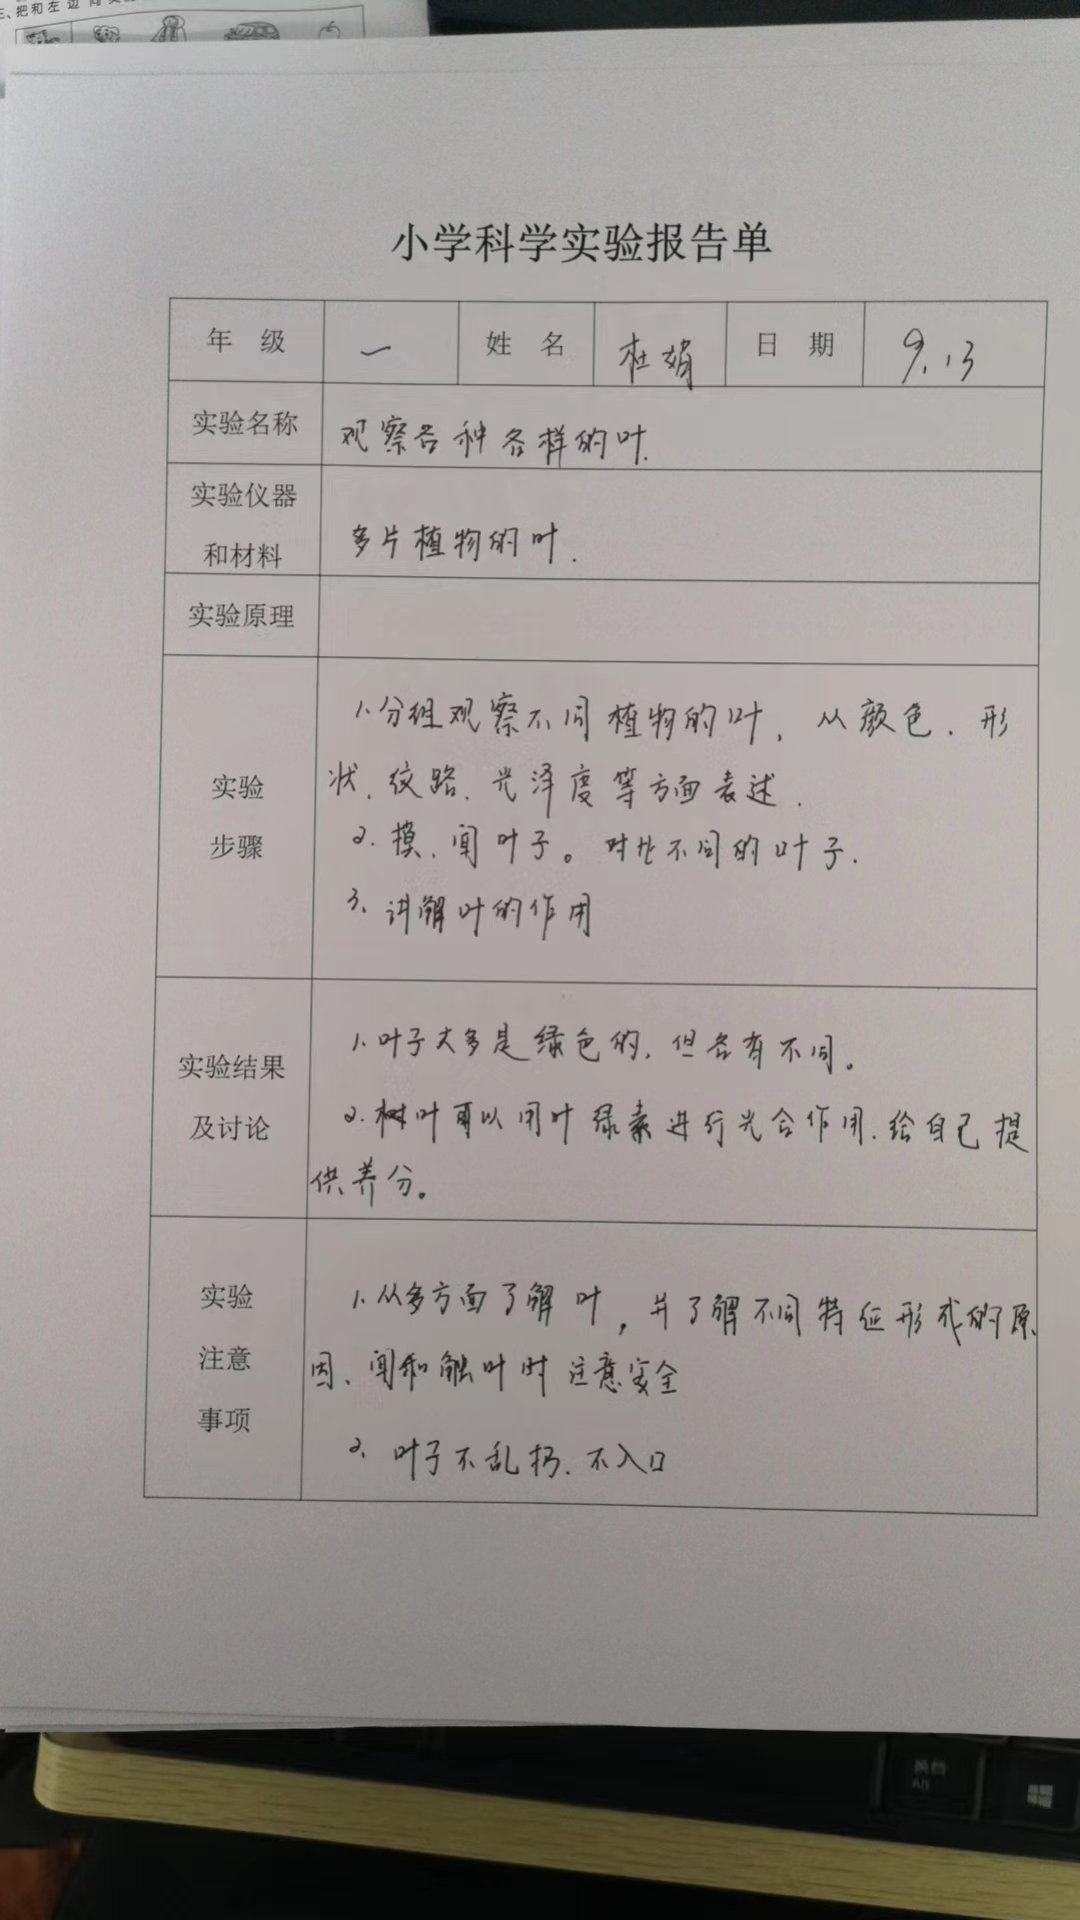 三、把和左边
小学科学实验报告单
年 级 一 姓 名 杜娟 日 期 9.13
实验名称 观察各种各样的叶.
实验仪器
和材料 多片植物的叶.
实验原理
实验
步骤
1.分组观察不同植物的叶，从颜色、形
状、纹路、光泽度等方面表述.
2.摸、闻叶子。对比不同的叶子.
3、讲解叶的作用
实验结果
及讨论
1.叶子大多是绿色的,但各有不同。
2.树叶可以用叶绿素进行光合作用.给自己提
供养分。
实验
注意
事项
1.从多方面了解叶，并了解不同特征形成的原
因、闻和触叶时注意安全
2、叶子不乱扔、不入口
换档
Alt